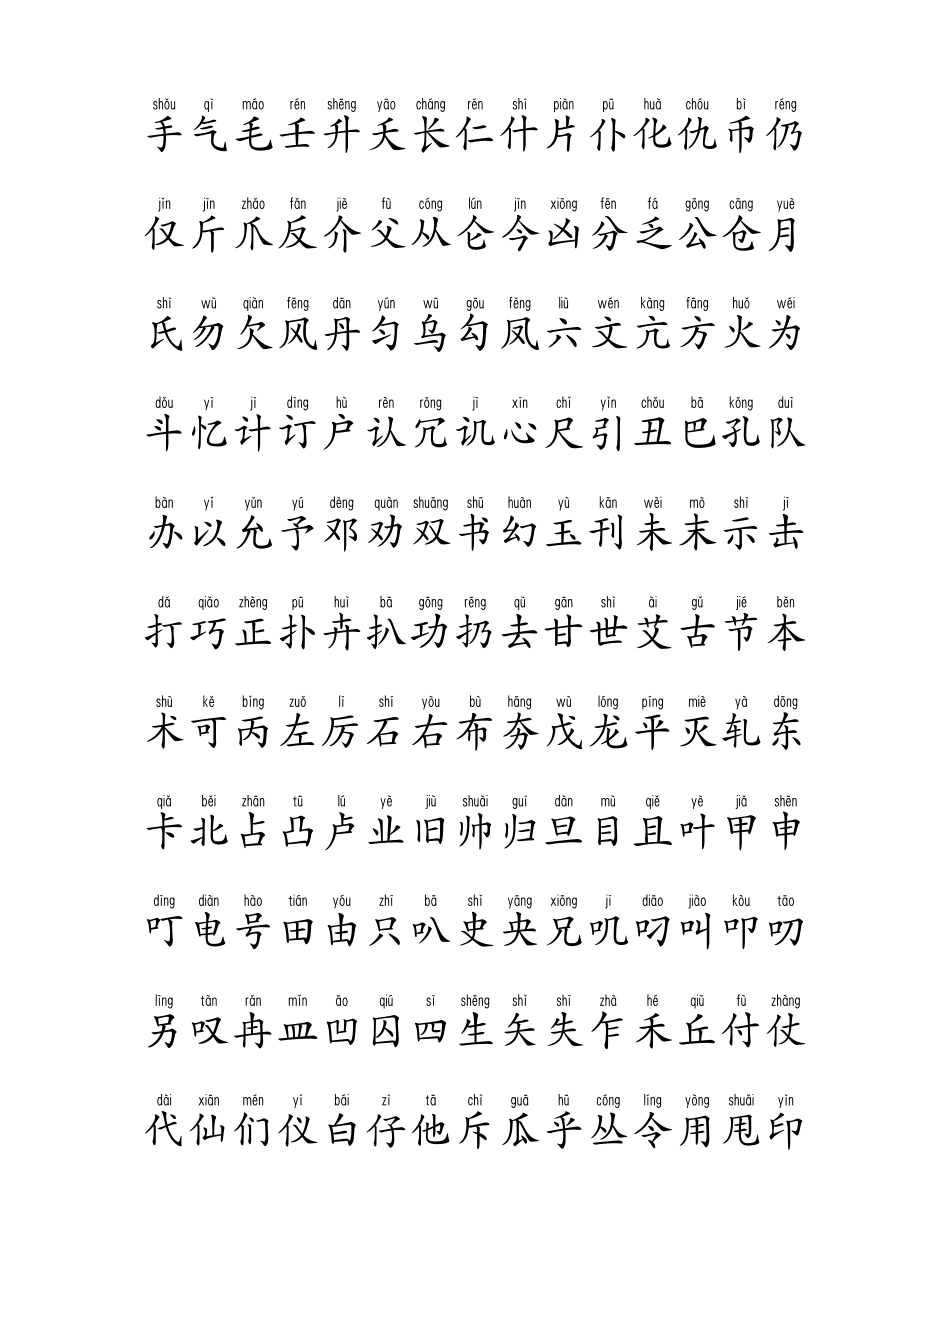 shǒu qì máo rén shēng yāo cháng rén shí piàn pū huà chóu bì réng
手气毛壬升夭长仁什片仆化仇币仍
jǐn jīn zhǎo fǎn jiè fù cóng lún jīn xiōng fēn fá gōng cāng yuè
仅斤爪反介父从仑今凶分乏公仓月
shì wù qiàn fēng dān yún wū gōu fèng liù wén kàng fāng huǒ wéi
氏勿欠风丹匀乌勾凤六文亢方火为
dǒu yì jì dìng hù rèn rǒng jī xīn chǐ yǐn chǒu bā kǒng duì
斗忆计订户认冗讥心尺引丑巴孔队
bàn yǐ yǔn yú dèng quàn shuāng shū huàn yù kān wèi mò shì jī
办以允予邓劝双书幻玉刊未末示击
dǎ qiǎo zhèng pū huì bā gōng rēng qù gān shì ài gǔ jié běn
打巧正扑卉扒功扔去甘世艾古节本
shù kě bǐng zuǒ lì shí yòu bù hāng wù lóng píng miè yà dōng
术可丙左厉石右布夯戊龙平灭轧东
qiǎ běi zhān tū lú yè jiù shuài guī dàn mù qiě yè jiǎ shēn
卡北占凸卢业旧帅归旦目且叶甲申
dīng diàn hào tián yóu zhǐ bā shǐ yāng xiōng jī diāo jiào kòu tāo
叮电号田由只叭史央兄叽叼叫叩叨
lìng tàn rǎn mǐn āo qiú sì shēng shǐ shī zhà hé qiū fù zhàng
另叹冉皿凹囚四生矢失乍禾丘付仗
dài xiān mén yí bái zī tā chì guā hū cóng lìng yòng shuǎi yìn
代仙们仪白仔他斥瓜乎丛令用甩印